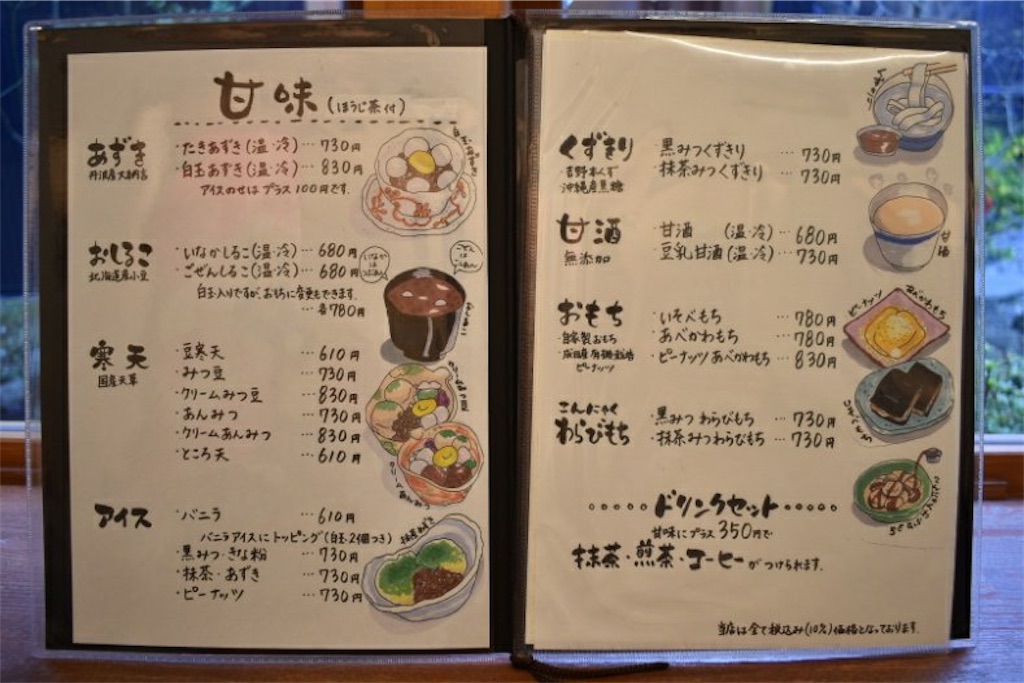 甘味 (ほうじ茶付)
あずき
丹波産大納言
・たきあずき(温・冷)…730円
・白玉あずき(温・冷)…830円
アイスのせは プラス 100円です。
おしるこ
北海道産小豆
・いなかしるこ(温・冷)…680円
・ごぜんしるこ(温・冷)…680円
白玉入りですが、おもちに変更もできます。
…各780円
寒天
国産天草
・豆寒天 …610円
・みつ豆 …730円
・クリームみつ豆 …830円
・あんみつ …730円
・クリームあんみつ …830円
・ところ天 …610円
アイス
・バニラ …610円
バニラアイスにトッピング(白玉2個つき)
・黒みつ・きな粉 …730円
・抹茶・あずき …730円
・ピーナッツ …730円
いなかは つぶあん
ごぜんは こしあん
クリームあんみつ
くずきり
・吉野本くず
・沖縄産黒糖
・黒みつくずきり …730円
・抹茶みつくずきり …730円
甘酒
無添加
・甘酒 (温・冷)…680円
・豆乳甘酒(温・冷)…730円
おもち
・自家製おもち
・成田産有機栽培
ピーナッツ
・いそべもち …780円
・あべかわもち …780円
・ピーナッツあべかわもち …830円
こんにゃく
わらびもち
・黒みつ わらびもち …730円
・抹茶みつわらびもち …730円
・・・・・ドリンクセット・・・・・
甘味にプラス 350円で
抹茶・煎茶・コーヒーがつけられます。
当店は全て税込み(10%)価格となっております。
くずきり
甘酒
ピーナッツ
あべかわもち
いそべもち